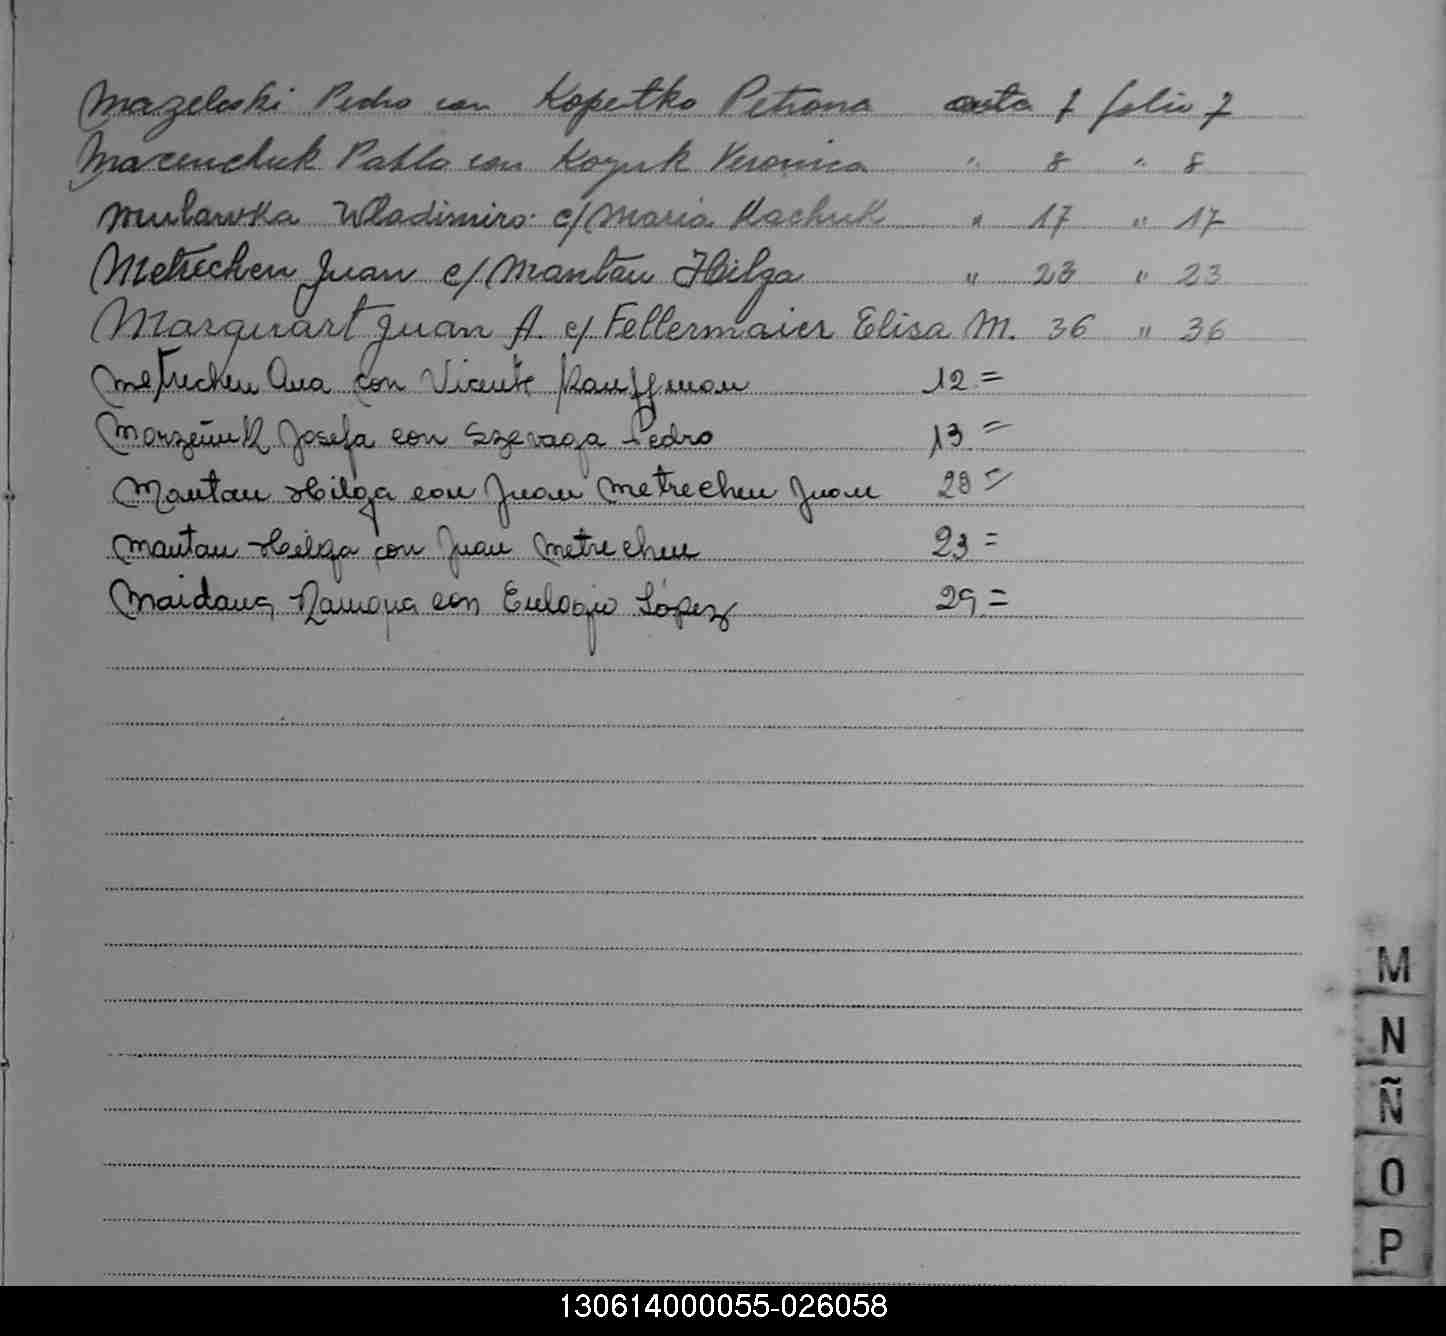 Mazeloski Pedro con Kopetko Petrona acta 7 folio 7
Mazenchuk Pablo con Kozuk Veronica " 8 " 8
Mulawka Wladimiro c/ Maria Kachuk " 17 " 17
Metrechen Juan c/ Mantau Hilga " 23 " 23
Marquart Juan A. c/ Fellermaier Elisa M. 36 " 36
Metrechen Ana con Vicente Kauffman 12 =
Josefa con Szevaga Pedro 13 =
Mantau Hilga con Juan Metrechen Juan =
Mantau Helga con Juan Metrechen 23 =
Maidana Ramona con Eulogio López 29 =
M
N
Ñ
O
P
130614000055-026058